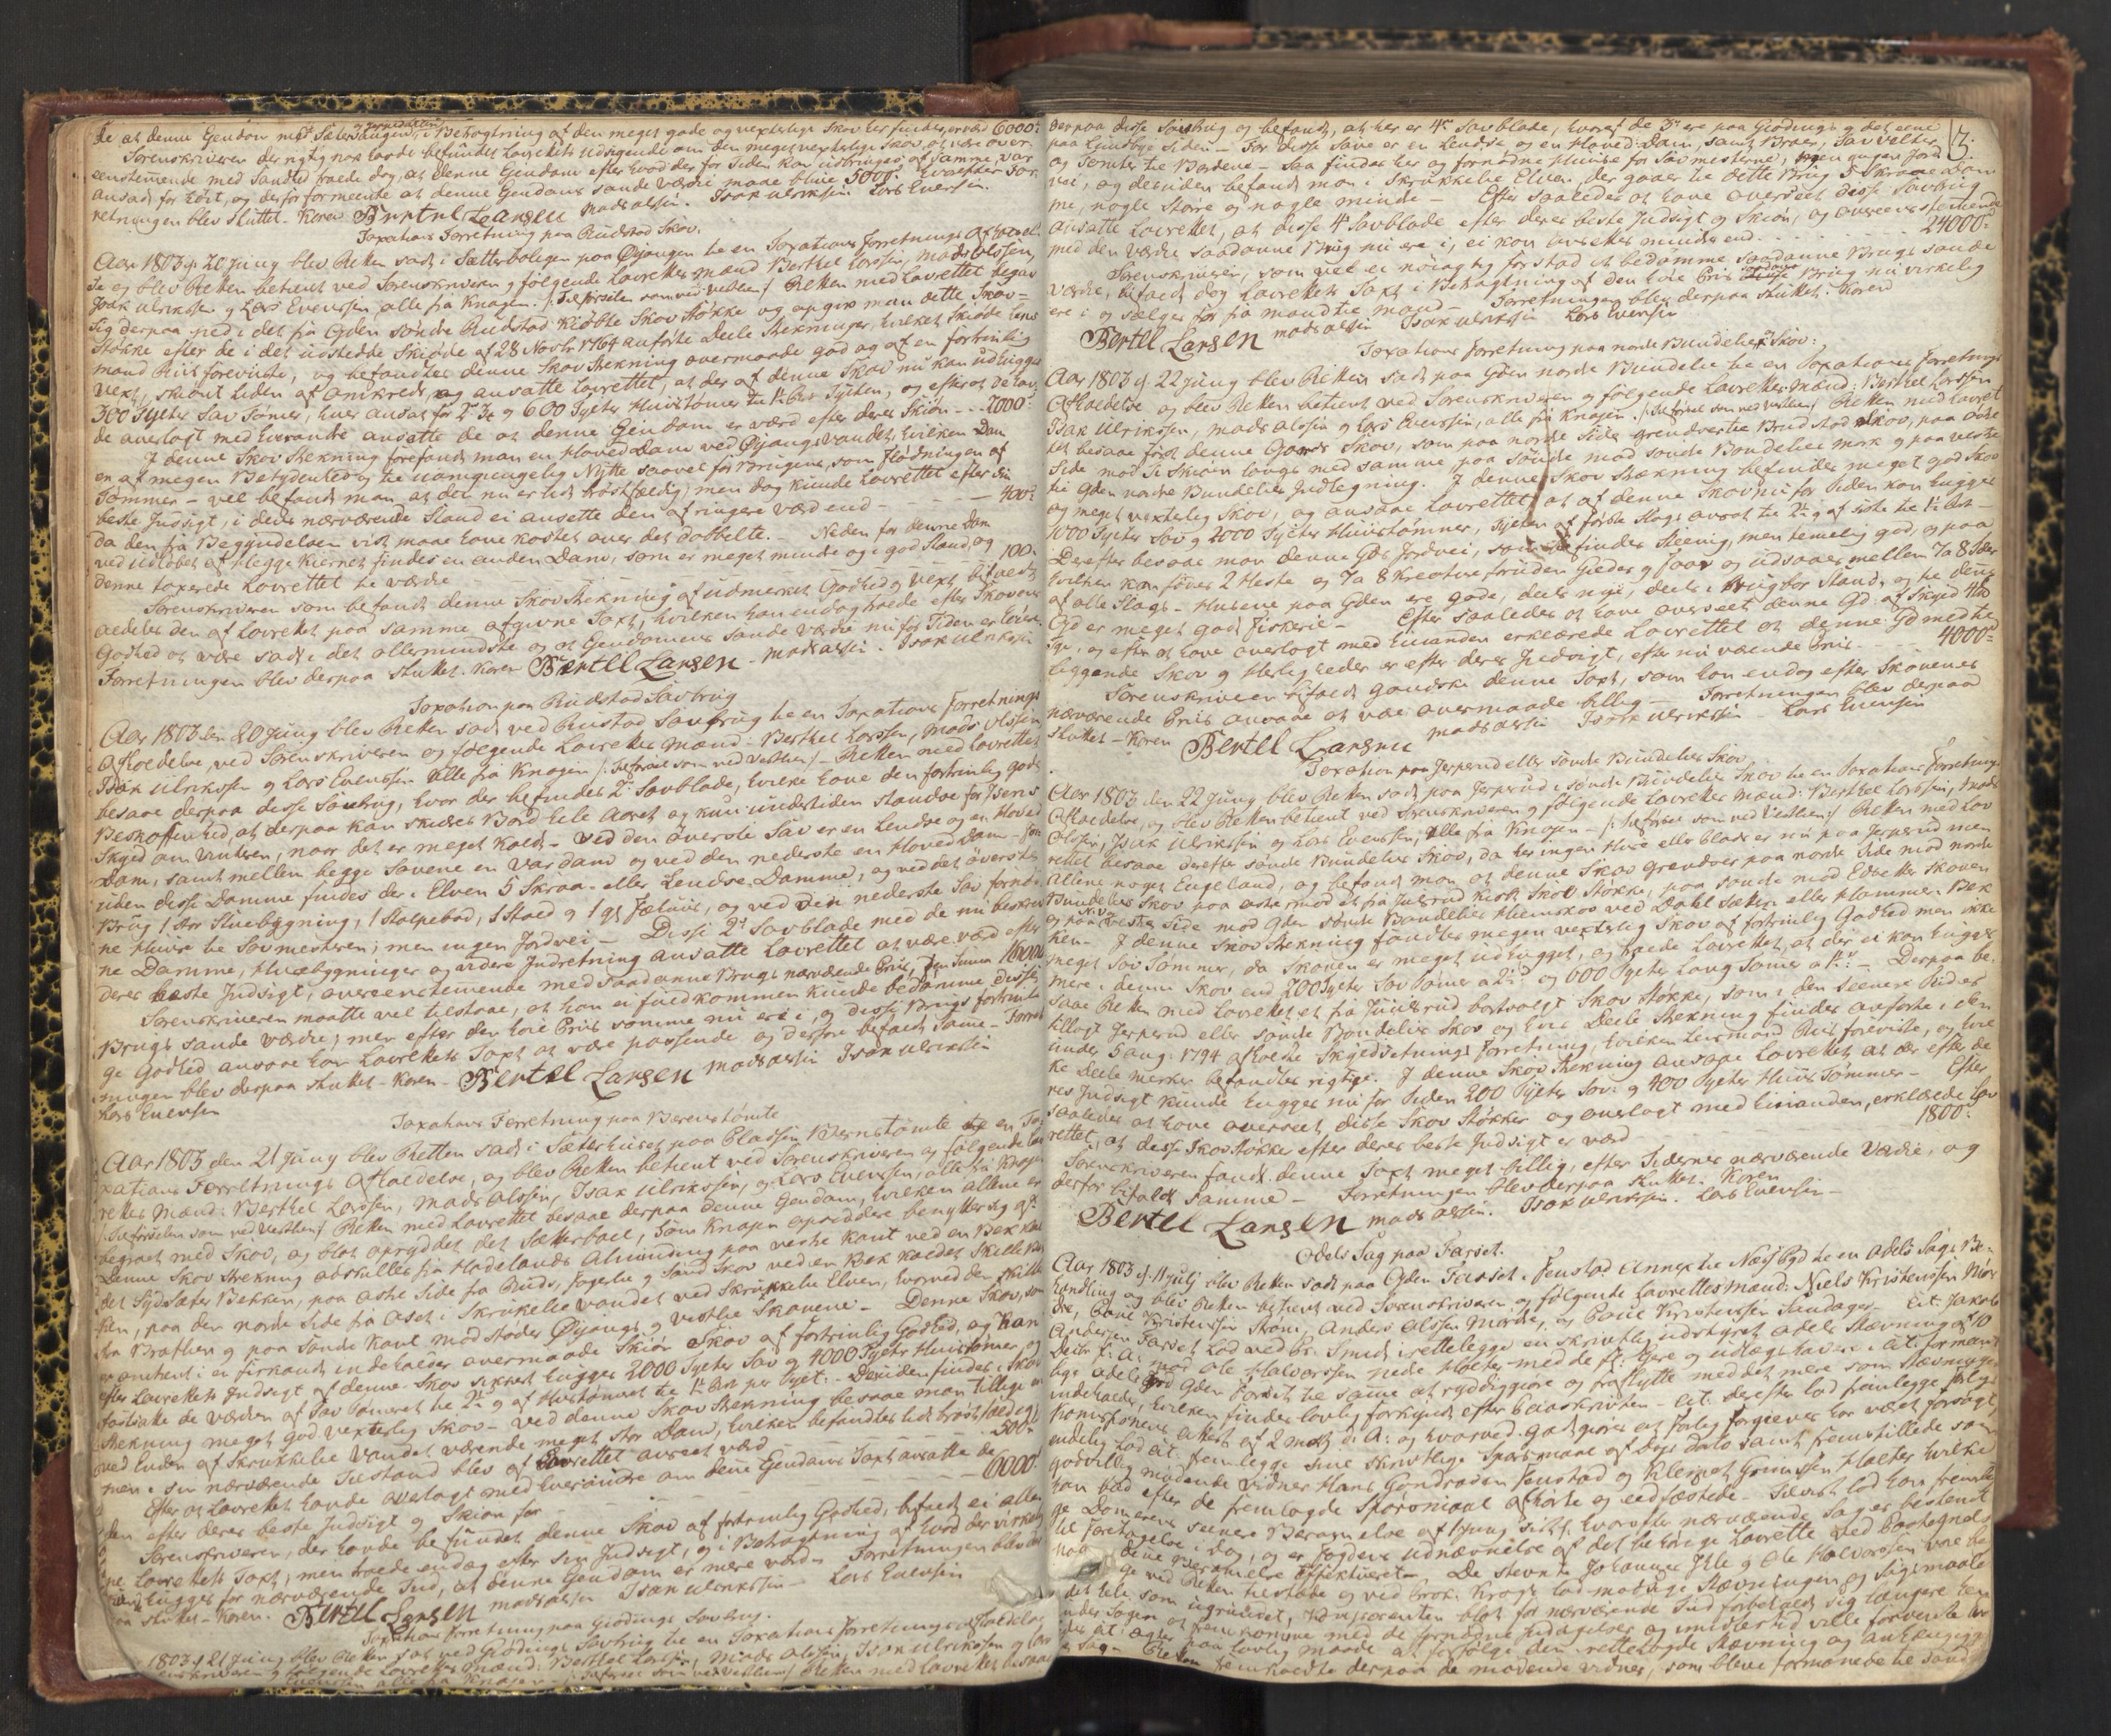 de at denne Eiendom med Sæter i Betragtning af den meget gode og vexterlige Skov her findes, er værd 6000
Sorenskriveren der rigtig nok havde befundet Lovrettets udsigende om den meget vexterlige Skov, at være over
eenstemende med Sandhed troede dog, at denne Eiendom efter hvad der for Tiden kan udbringes af samme, var
ansadt for høit, og derfor formeente at denne Eiendoms sande Værdie maae blive 5000. Hvorefter For
retningen blev sluttet. Koren Bertel Larsen Mads Olsen. Isak Ulriksen Lars Evensen.
Taxations Forretning paa Rudstad Skov.
Aar 1803 d. 20 Juny blev Retten sadt i Sætterboligen paa Øyangen til en Taxations Forretnings Afholdel
se og blev Retten betient ved Sorenskriveren og følgende Lavrettes Mænd Berthel Larssen, Mads Olssen,
Isak Ulrikssen og Lars Evenssen, alle fra Knagen. /: Tilførselen som ved Vestlien :/ Retten med Lavrettet begav
sig derpaa ned i det fra Gden søndre Rudstad kiøbte Skov Støkke og opgik man dette Skov-
støkke efter de i det udstedde Skiøde af 28 Novbr 1764 anførte Deele Strekninger, hvilket Skiøde Lens
mand Ruus foreviiste, og befandtes denne Skov Strekning overmaade god og af en fortrinlig
vext, skiønt liden af omkreds, og ansatte Lavrettet, at der af denne Skov nu kan udhugges
300 Tylter Sav Tømer, hver ansat for 2 og 600 Tylter Huustømer til Tylten, og efter at de hav
de overlagt med hverandre ansatte de at denne Eiendom er værd efter deres Skiøn - - - 2000
I denne Skov Strekning forefandt man en Hoved Dam ved Øyangs Vandet, hvilken Dam
en af megen Betydenhed og til uomgiengelig Nytte saavel for Brugene, som Flødningen af
Tømmer - vel befandt man at det nu er lidt brøstfældig, men dog kunde Lavrettet efter sin
beste Indsigt, i dens nærværende Stand ei ansette den af ringere værd end - - - 400
da den fra Begyndelsen vist maae have kostet over det dobbelte. - Neden for denne Dam
ved Udløbet af Hegge Kiernet findes en anden Dam, som er meget mindre og i god Stand, og
denne taxerede Lavrettet til Værdie - - - 100
Sorenskriveren som befandt denne Skov Strekning af udmerket Godhed og Vext, bifaldt
aldeles den af Lavrettet paa samme afgivne Taxt, hvilken han endog troede efter Skovens
Godhed at være sadt i det allermindste og at Eiendommens sande Værdie nu for Tiden er høiere.
Forretningen blev derpaa sluttet. Koren Bertel Larsen. Mads Olsen. Isak Ulriksen
Taxation paa Rudstad Savbrug
Aar 1803 den 20 Juny blev Retten sadt ved Rustad Savbrug til en Taxations Forretnings
Afholdelse, ved Sorenskriveren og følgende Lavrettes Mænd. Berthel Larssen, Mads Olssen,
Isak Ulrikssen og Lars Evenssen alle fra Knagen /: Tilførsel som ved Vestlien :/ - Retten med Lavrettet
besaae derpaa disse Savbrug, hvor der befindes 2 Savblade, hvilke have den fortrinlig gode
Beskaffenhed, at derpaa kan skiæres Bord hele Aaret og kun undertiden standse for Isens
Skyld om Vinteren, naar det er meget koldt. - Ved den øverste Sav er en Lendse og en Hoved
Dam, samt mellem begge Savene en Vardam og ved den nederste en Hoved Dam - for
uden disse Damme findes der i Elven 5 Skraa- eller Lendse Damme, og ved det øverste
Brug 1 stor Stuebygning, 1 Stolpebod, 1 Stald og 1 gl. Fæhuus, og ved den nederste Sav fornød
ne Huuse til Savmesteren; men ingen Jordvei - Disse 2 Savblade med de nu beskrev
ne Damme, Huusbygninger og videre Indretning ansatte Lavrettet at være værd efter
deres beste Indsigt, overeenstemende med saadanne Brugs nærværende Priis, Summa 16000
Sorenskriveren maatte vel tilstaae, at han ei fuldkommen kunde bedømme disse
Brugs sande Værdie; men efter den høie Priis samme nu ere i, og disse Brugs fortrinli
ge Godhed ansaae han Lavrettets Taxt at være passende og derfor bifaldt samme - Forret
ningen blev derpaa sluttet - Koren - Bertel Larsen Mads Olsen Isak Ulriksen
Lars Evensen
Taxations Forretning paa Bernstomte
Aar 1803 den 21 Juny blev Retten sadt i Sæterhuset paa Pladsen Bernstomte til en Ta-
xations Forretnings Afholdelse, og blev Retten betient ved Sorenskriveren og følgende Lav
rettes Mænd: Berthel Larssen, Mads Olssen, Isak Ulrikssen, og Lars Evenssen, alle fra Knagen
/: Tilførselen som ved Vestlien :/ Retten med Lavrettet besaae derpaa denne Eiendom, hvilken allene er
begroet med Skov, og blot opryddet det Sætterboel, som Knagen opsiddere benytter sig af
Denne Skov Strekning adskilles fra Hadelands Alminding paa vestre Kant ved en Bek
det Sydsæter Bekken, paa østre Side fra Ruds, Fagerlie og Sand Skov ved en Bek kaldet Skille
ken, paa den nordre Side fra Aset i Skrukkelie Vandet ved Skrukkelie Elven, hvorved den skille
fra Brathen og paa søndre Kant mod støder Øyangs og Vestlie Skovene - Denne Skov, som
er omtrent i en firkant indeholder overmaade skiøn Skov af fortrinlig Godhed, og kan
efter Lavrettets Indsigt af denne Skov sikkert hugges 2000 Tylter Sav og 4000 Tylter Huustømer, og
fastsatte de værdien af Sav Tømeret til 2 og af Huustømeret til per Tylt. - Desuden findes i Skov
Strekning meget god vexterlig Skov - Ved denne Skov Strekning besaae man tillige en
ved Enden af Skrukkelie Vandet værende meget stor Dam, hvilken befandtes lidt brøstfældig
men i sin nærværende Tilstand blev af Lavrettet anseet værd - - - 500
Efter at Lavrettet havde overlagt med hverandre om denne Eiendoms Taxt ansatte de
den efter deres beste Indsigt og Skiøn for - - - 6000
Sorenskriveren, der havde befundet denne Skov af fortrinlig Godhed, bifaldt ei allene
ne Lavrettets Taxt; men troede endog efter sin Indsigt, og i Betragtning af hvad der virkelig
hugges for nærværende Tid, at denne Eiendom er mere værd. Forretningen blev der
paa sluttet - Koren. Bertel Larsen Mads Olsen Isak Ulriksen - Lars Evensen
Taxations Forretning paa Giødings Savbrug.
1803 d. 21 Juny blev Retten sat ved Giødings Savbrug til en Taxations Forretnings Afholdelse
Sorenskriveren og følgende Lavrettes Mænd: Berthel Larssen, Mads Olssen, Isak Ulrikssen og Lars
Evenssen alle fra Knagen /: Tilførsel som ved Vestlien :/ Retten med Lavrettet besaae
3.
derpaa disse Savbrug og befandt, at her er 4 Savblade, hvoraf de 3 ere paa Giødings og det eene
paa Lundbye Siden - For disse Save er en Lendse og en Hoved Dam, samt Broer, Sav velter
og Tomter til Bordene - Saa findes her og fornødne Huuse for Savmesterne, men ingen Jord
vei, og desuden befandt man i Skrukkelie Elven der gaaer til dette Brug 5 Skraae Dam
me, nogle større og nogle mindre - Efter saaledes at have overseet disse Savbrug
ansatte Lavrettet, at disse 4 Savblade efter deres beste Indsigt og Skiøn, og overeenstemmende
med den Værdie saadanne Brug nu ere i, ei kan ansettes mindre end - - - 24000
Sorenskriveren, som vel ei nøiagtig forstod at bedømme saadanne Brugs sande
Værdie, bifaldt dog Lavrettets Taxt i Betragtning af den høie Priis saadanne Brug nu virkelig
ere i og sælges for fra mand til mand - Forretningen blev derpaa sluttet. Koren
Bertel Larsen Mads Olsen Isak Ulriksen Lars Evensen
Taxations Forretning paa nordre Bundelies Skov:
Aar 1803 d. 22 Juny blev Retten sadt paa Gden nordre Bundelie til en Taxations Forretnings
Afholdelse og blev Retten betient ved Sorenskriveren og følgende Lavrettes Mænd: Berthel Larssen
Isak Ulrikssen, Mads Olssen og Lars Evenssen, alle fra Knagen. /: Tilførsel som ved Vestlien :/ Retten med Lavret
tet besaae først denne Gaards Skov, som paa nordre Side grendser til Brudstad Skov, paa østre
Side mod langs med samme, paa søndre mod søndre Bondelies mark og paa vestre
til Gden nordre Bundelies Indlegning. I denne Skov Strækning befindes meget god Skov
og meget vexterlig Skov, og ansaae Lavrettet, at af denne Skov nu for Tiden kan hugges
1000 Tylter Sav og 2000 Tylter Huustømmer, Tylten af første Slags ansat til 2 og af sidste til
Derefter besaae man denne Gds Jordvei, som befindes steenig, men temelig god, og paa
hvilken kan føes 2 Heste og 7 a 8 Kreature foruden Gieder og Faar og udsaaes mellem 7 a 8 Tdr
af alle Slags - Husene paa Gden ere gode, deels nye, deels i brugbar Stand, og til dene
Gd er meget godt Fiskerie - Efter saaledes at have overseet denne Gd. af Skyld
og efter at have overlagt med hinanden erklærede Lavrettet at denne Gd med til
liggende Skov og Herligheder er efter deres Indsigt, efter nu værende Priis - - - 4000
Sorenskriveren bifaldt gandske denne Taxt, som han endog efter Skovenes
nærværende Priis ansaae at være overmaade billig - Forretningen blev derpaa
sluttet - Koren Bertel Larsen Mads Olsen Isak Ulriksen - Lars Evensen
Taxation paa Jerperud eller søndre Bundelies Skov
Aar 1803 den 22 Juny blev Retten sadt paa Jerperud i søndre Bundelies Skov til en Taxations Forretnings
Afholdelse, og blev Retten betient ved Sorenskriveren og følgende Lavrettes Mænd: Berthel Larssen, Mads
Olssen, Isak Ulrikssen og Lars Evenssen, alle fra Knagen - /: Tilførsel som ved Vestlien :/ Retten med Lav
rettet besaae derefter søndre Bundelies Skov, da her ingen Huus eller er nu paa Jerperud men
allene noget Engeland, og befandt man at denne Skov grendser paa nordre Side mod nordre
Bundelies Skov paa østre mod et fra Juusrud Skov Støkke, paa søndre mod Skoven
og paa vestre Side mod Gden søndre Bundelies Hiemskov ved Dahl Sæter eller Hammer Bek
ken - I denne Skov Strekning fandtes megen vexterlig Skov af fortrinlig Godhed men ikke
meget Sav Tømmer, da Skoven er meget udhugget, og troede Lavrettet, at der ei kan hugges
mere i denne Skov end 200 Tylter Sav Tømer a 2 og 600 Tylter Lang Tømer a - Derpaa be-
saae Retten med Lavrettet et fra Juusrud bortsolgt Skov Støkke, som i den senere Tid er
tillagt Jerperud eller søndre Bondelies Skov og hvis Deele Strekning findes anførte i den
under 5 Aug. 1794 afholdte Skyldsetnings Forretning, hvilken Lensmand Ruus foreviste, og hvil
ke Deele merker befandtes rigtige. I denne Skov Strekning ansaae Lavrettet, at der efter de
res Indsigt kunde hugges nu for Tiden 200 Tylter Sav og 400 Tylter Huus Tømmer - Efter
saaledes at have overseet disse Skov Støkker og overlagt med hinanden, erklærede Lav
rettet, at desse Skov Støkke efter deres beste Indsigt er værd - 1800
Sorenskriveren fandt denne Taxt meget billig, efter Tidernes nærværende Værdie, og
derfor bifaldt samme - Forretningen blev derpaa sluttet. Koren
Bertel Larsen Mads Olsen. Isak Ulriksen. Lars Evensen -
Odels Sag paa Farset.
Aar 1803 d. 11 July blev Retten sadt paa Gden Farset i Fenstad Annex til Næs Pgd til en Odels Sags Be-
handling og blev Retten betient ved Sorenskriveren og følgende Lavrettesmænd: Niels Kristenssen
Poul Kristenssen Strøm, Anders Olssen og Poul Kristenssen Sundager. - Cit. Jakob
Anderssen Farset lod ved Smidt irettelegge en skriftlig udstyret Odels Stævning af 10
mod Ole Halvorssen nedre Holter med de fl. Gaard Farset til samme at ryddiggiøre og fraflytte med det mere som Stævningen
indeholder, hvilken findes lovlig forkyndt efter Paaskriften - Cit. derefter lod fremlegge
Commissionens Attest af 2 og hvorved godtgiøres at forlig forgieves har været forsøgt,
endelig lod Cit. fremlegge sine skriftlige Spørsmaale af Dags dato samt fremstillede som
godvillig mødende Vidner Hans Gundersen Fenstad og Holter hvilke
han bad efter de fremlagde Spørsmaal afhørte og eedfæstede. - Tilsidst lod han fremleg
ge Dommerens Berammelse af Juny sidstl. hvorefter nærværende Sag er bestemt
til Foretagelse i Dag, og er Fogdens Udnævnelse af det behørige Lavrette ved Paategnelse
paa denne Berammelse effektueret - De stevnte Johannes og Ole Halvorssen vare be
ge ved Retten tilstæde og ved Krogh lod modsige Stævningen og Sigtmaale
det hele som ugrundet, blot for nærværende Tid forbeholdt sig længere hen
under Sagen at fremkomme med de fornødne Indsigelser og imidlertid ville forvente hvor
ledes Cit. agter paa lovlig maade at forfølge den rettelagde Stævning og anhængig
e Sag - Retten fremkaldte derpaa de mødende Vidner, som bleve formanede til Sand